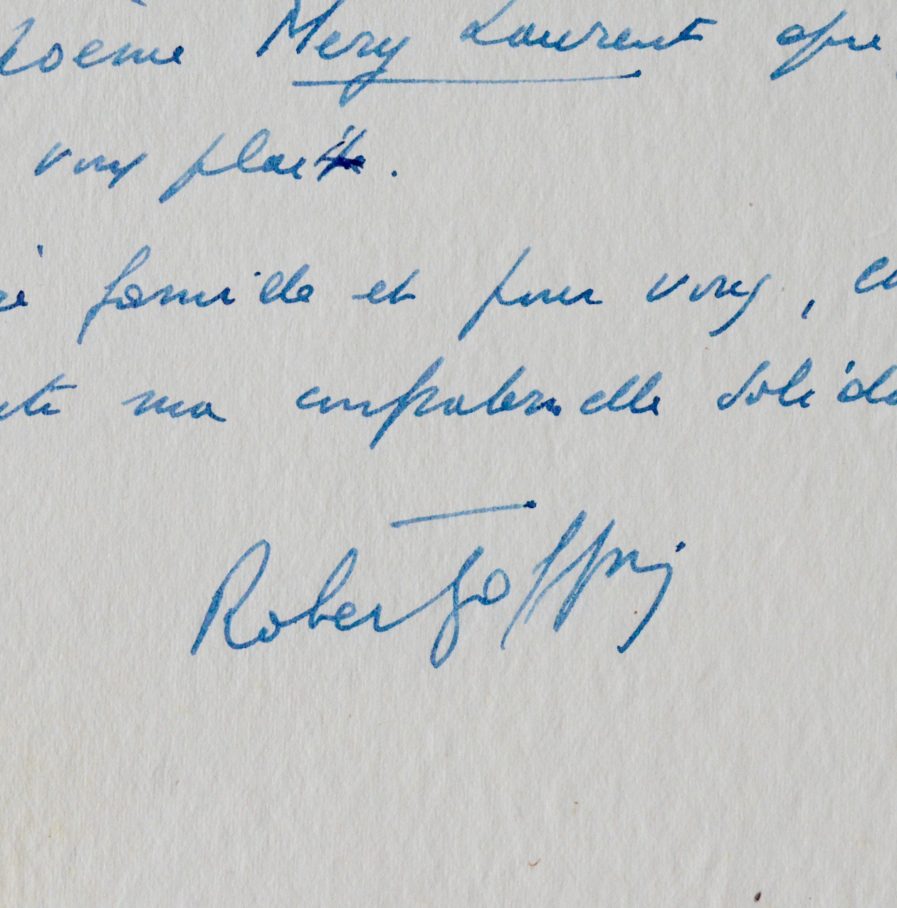 poème Mery Laurent que
vous plait.
famille et pour vous,
ma confraternelle
Robert Goffin